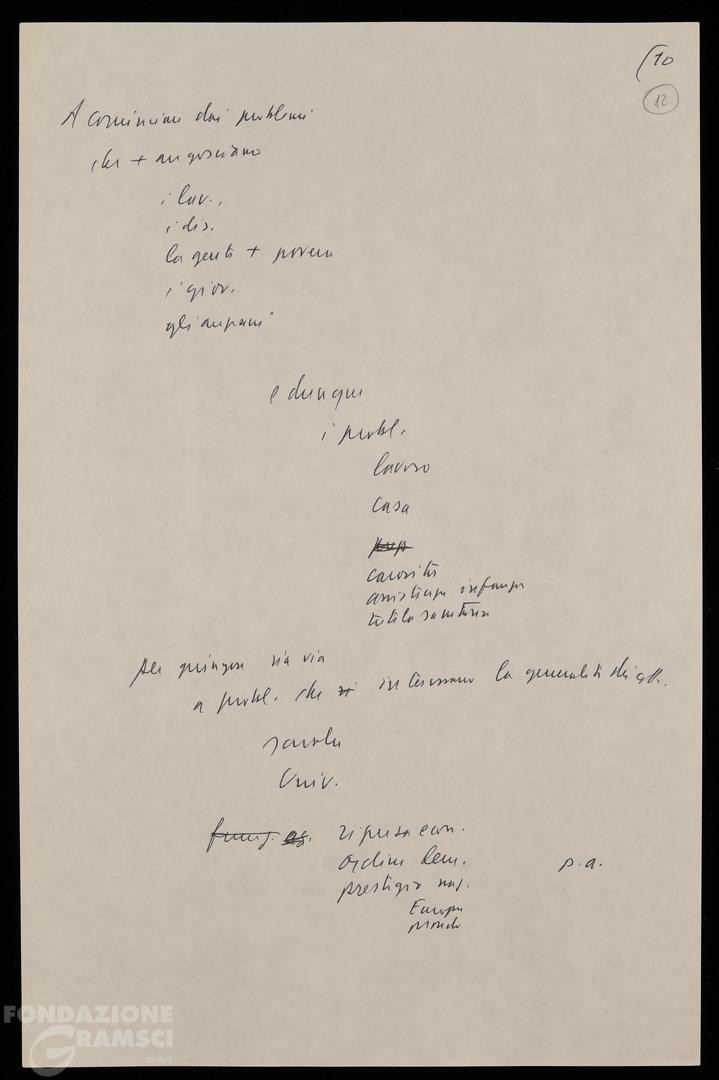 (10
12
A cominciare dai problemi
che + angosciano
i lav.,
i dis.
la gente + povera
i giov.
gli anziani
e dunque
i probl.
lavoro
casa
carovita
assistenza infanzia
tutela sanitaria
Per giungere via via
a probl. che si interessano la generalità dei citt.
scuola
Univ.
funz. ripresa econ.
ordine dem. p.a.
prestigio naz.
Europa
mondo
FONDAZIONE
GRAMSCI
onlus